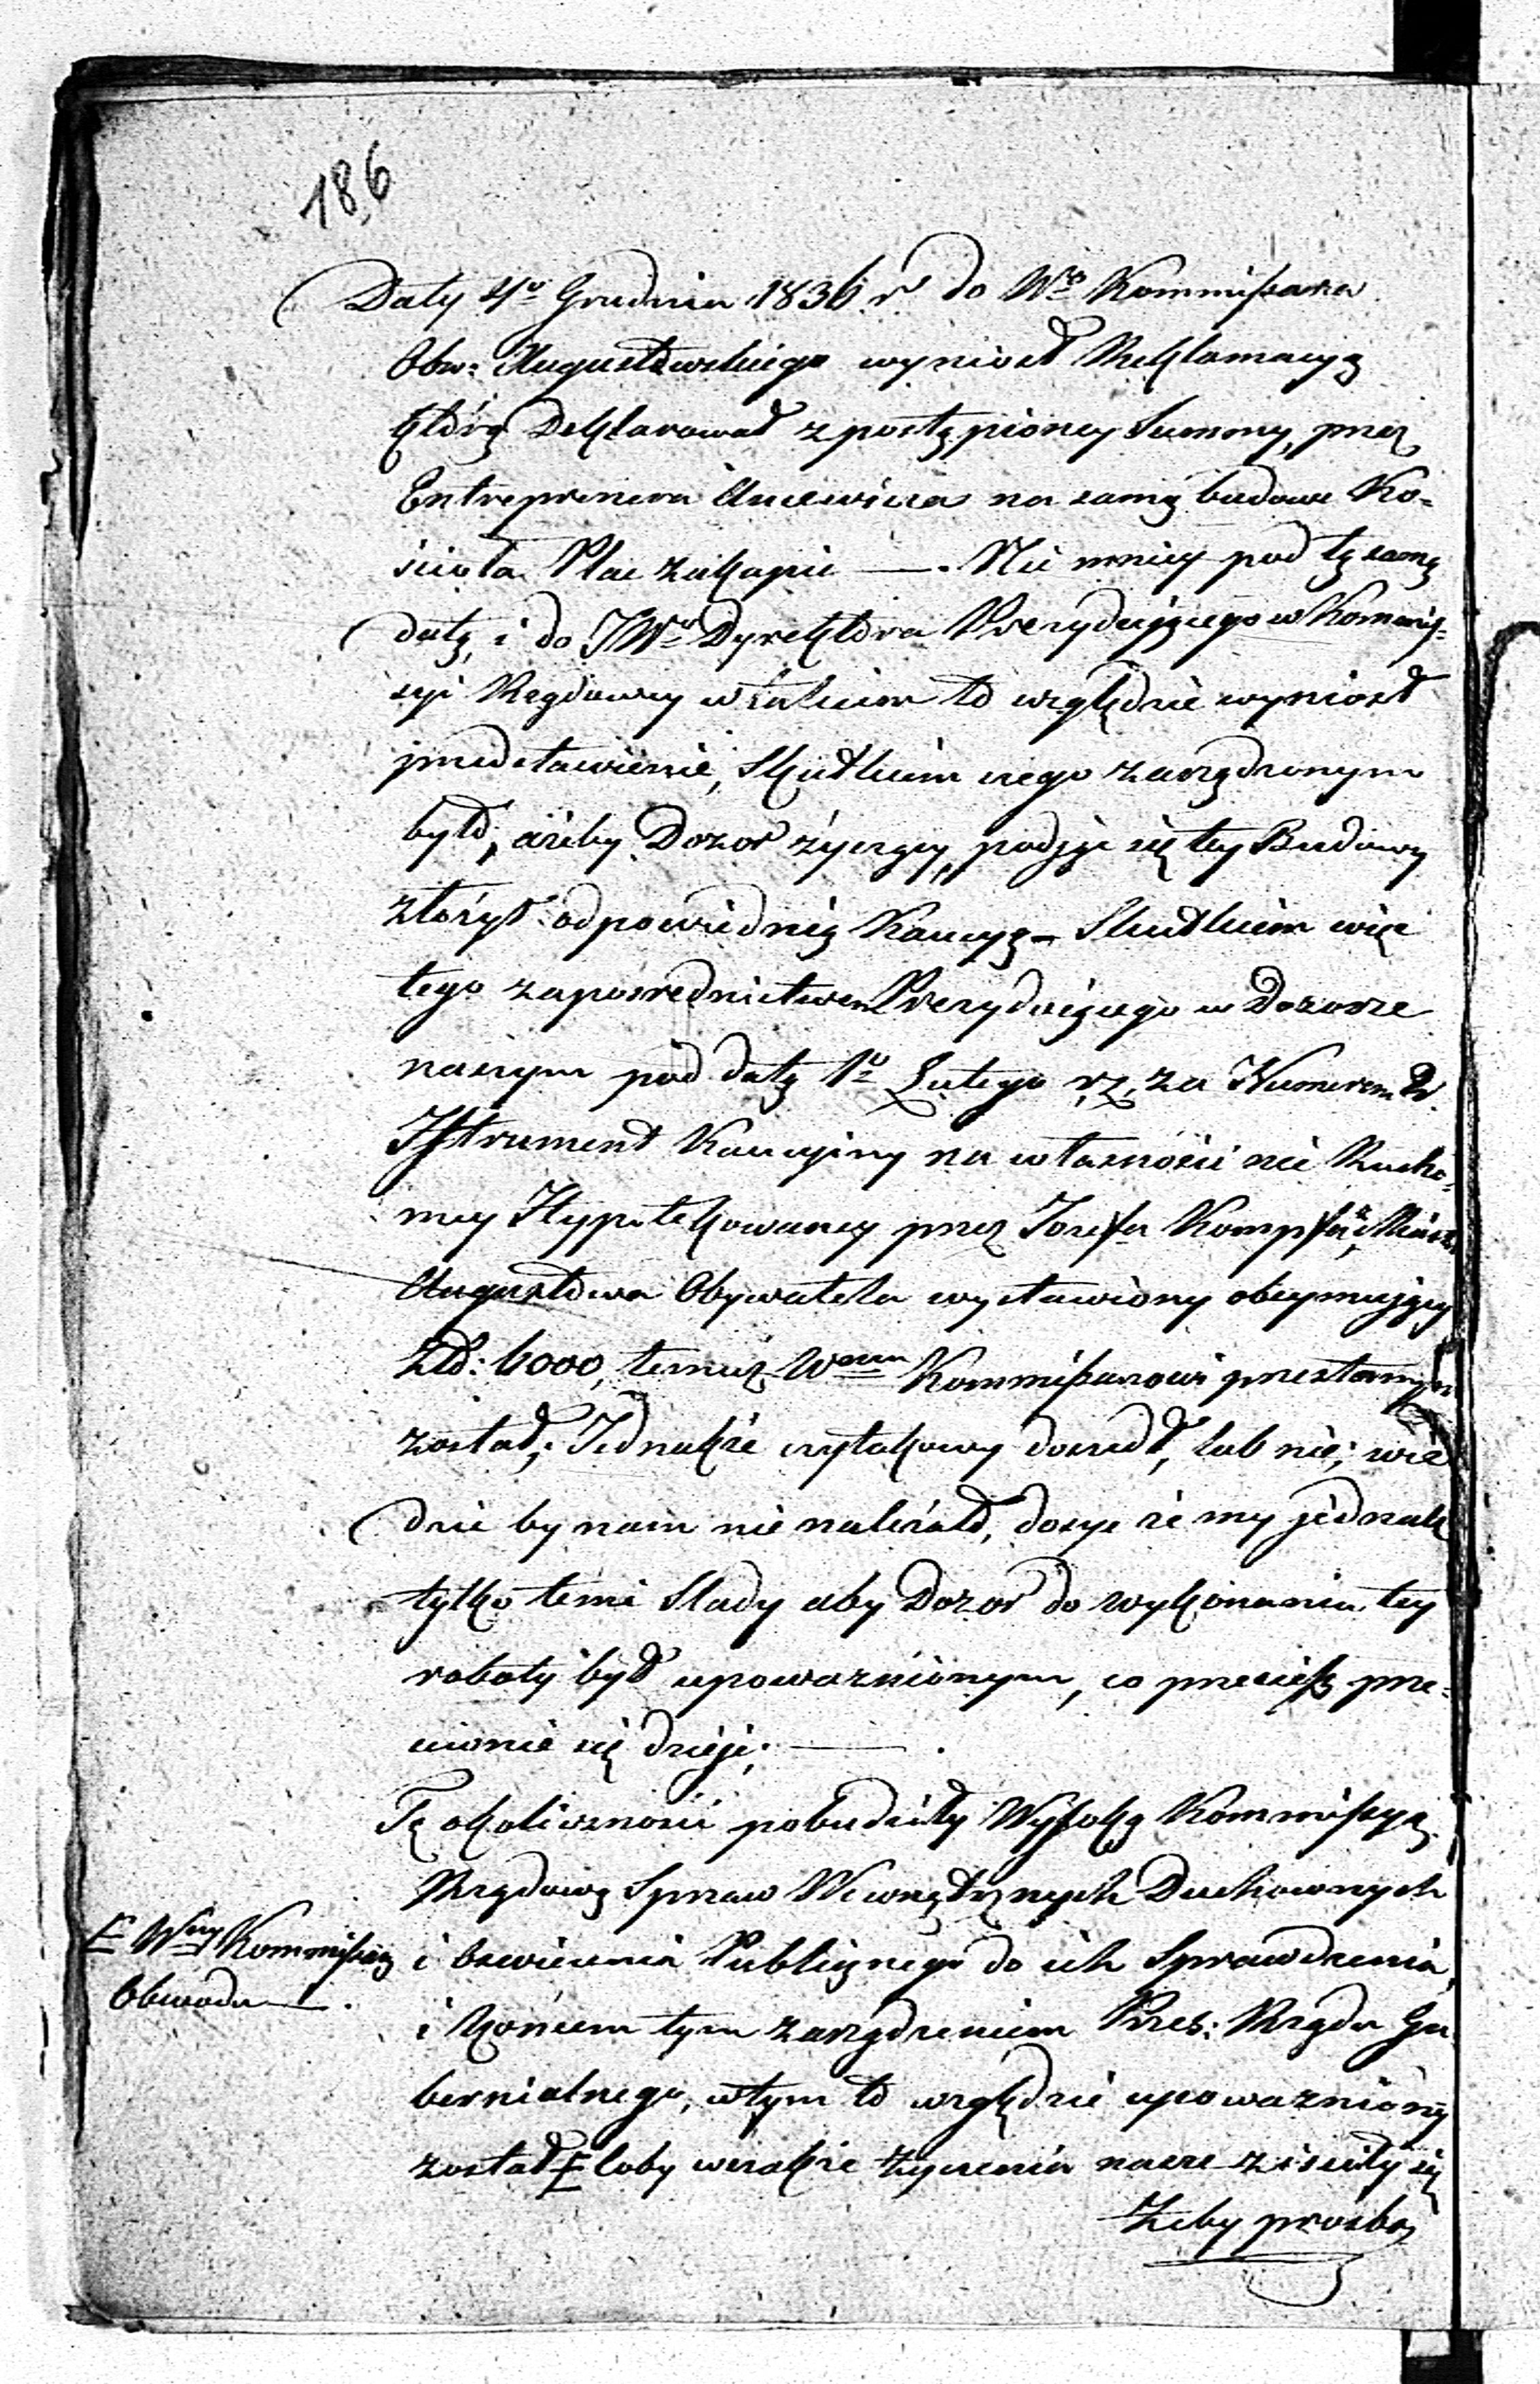 186
Daty 4º Grudnia 1836 r do Wº Kommissarza
Obw: Augustowskiego wyniosł Reklamacyą
którą Deklarował z postąpioney Summy, przez
Entreprenera na samą budowe Ko-
ścioła Plac zakupic —. Nie mniey pod tę samą
datą, i do JWº Dyrektora Prezydującego w Kommis-
syi Rządowey w takiem to względzie wyniosł
przedstawienie, Skutkiem czego zarządzonym
było, ażeby Dozor życzący podjąc się tey Budowy
złożył odpowiednią Kaucyą – Skutkiem więc
tego zaposrednictwem Prezydującego w Dozorze
naszym pod datą 1º Lutego r.z. za Numerem 2.
Istrument Kaucyiny na własności nie Rucho-
mey Hypotekowaney przez Jozefa Kompfa, Miasta
Augustowa Obywatela wystawiony obeymujący
Złł: 6000, temuż Wemu Kommissarowi przesłanym
został; Jednakże czytakowy doszedł, lub nie; wie
dzie by nam nie należało, dosyc że my jednak
tylko temi Slady aby Dozor do wykonania tey
roboty był upoważnionym, co przeciesz prze-
ciwnie się dzieje; —.
Tę okoliczności pobudziły Wysoką Kommissyą
Rządową Spraw Wewnętrznych Duchownych
i Oswiecenia Publicznego do ich Sprawdzenia,
i Końcem tym zarządzeniem Rzes: Rządu Gu
bernialnego, wtym to względzie upoważniony
został F loby wszakże życzenia nasze zisciły się
Żeby prosbę
F Wny Kommissarz
Obwodu —.